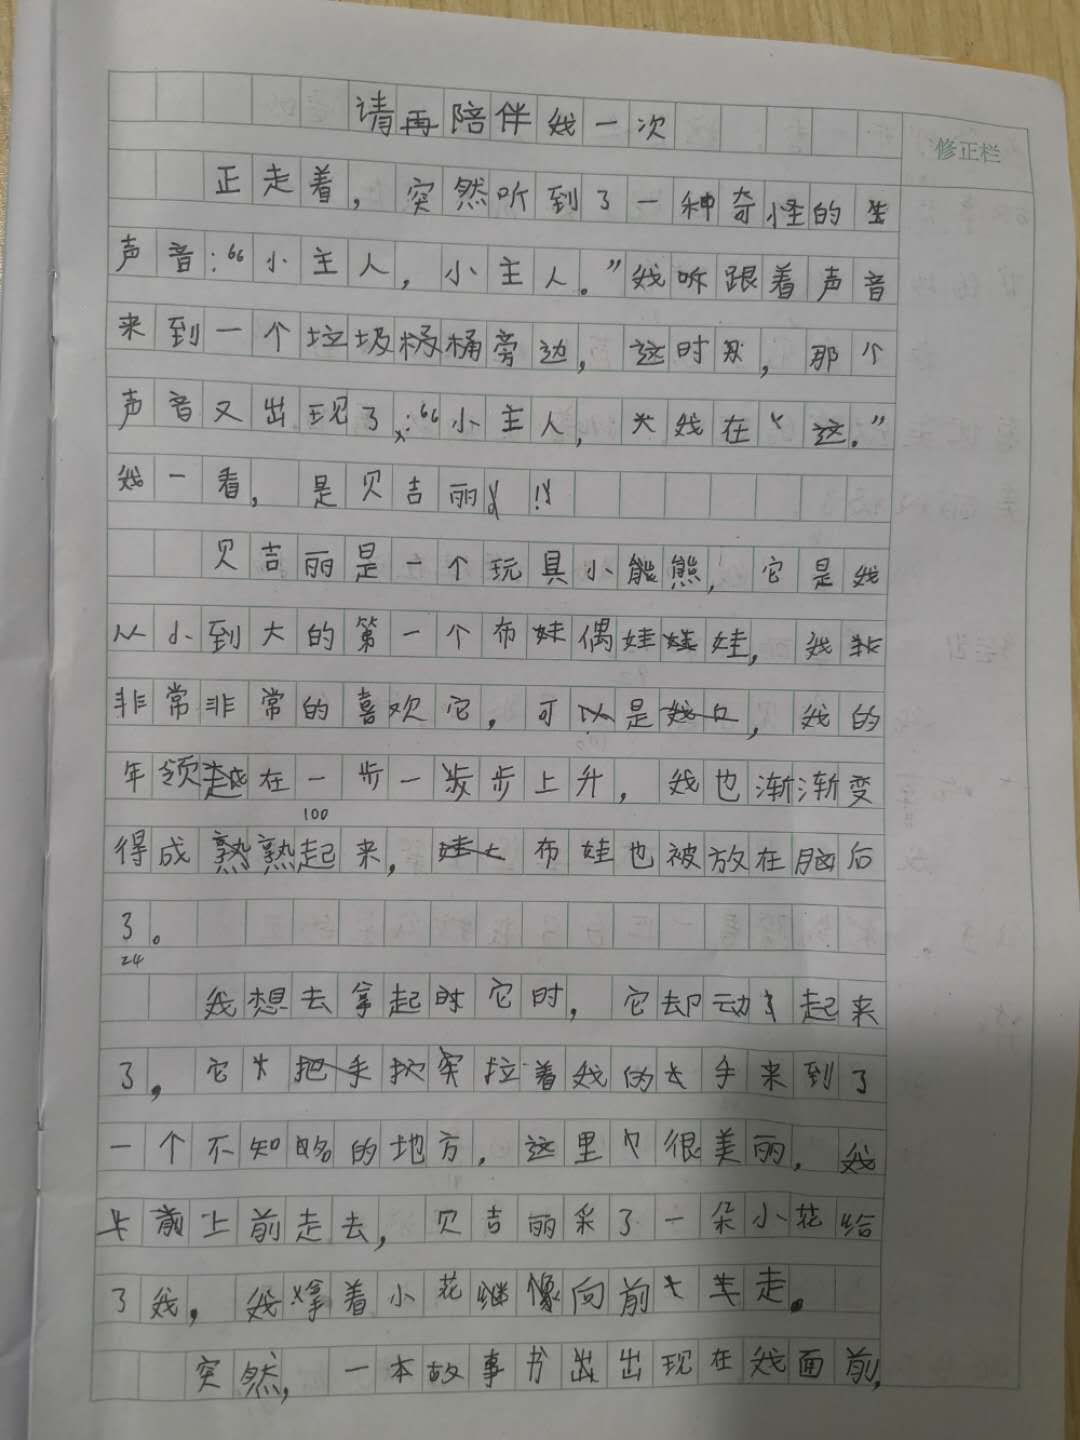 请再陪伴我一次
修正栏
正走着，突然听到了一种奇怪的
声音：“小主人，小主人。”我跟着声音
来到一个垃圾桶旁边，这时，那个
声音又出现了：“小主人，我在这。”
我一看，是贝吉丽！
贝吉丽是一个玩具小熊，它是我
从小到大的第一个布偶娃娃，我
非常非常的喜欢它，可是，我的
年领在一步一步上升，我也渐渐变
100
得成熟起来，布娃也被放在脑后
了。
24
我想去拿起它时，它却动起来
了，它拉着我的手来到了
一个不知的地方，这里很美丽，我
上前走去，贝吉丽采了一朵小花给
了我，我拿着小花继像向前走。
突然，一本故事书出现在我面前，